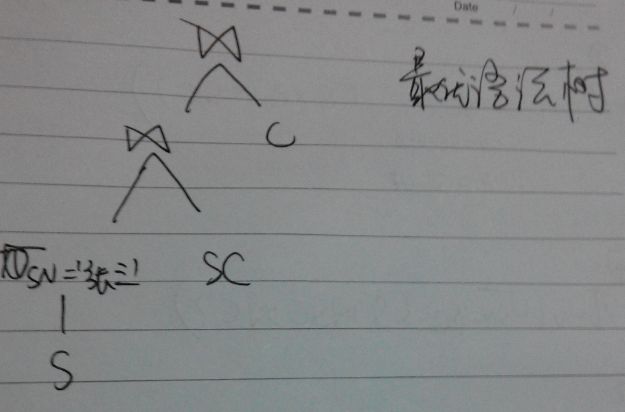 Date / /
⋈
最优语法树
C
⋈
SN='张三'
SC
S